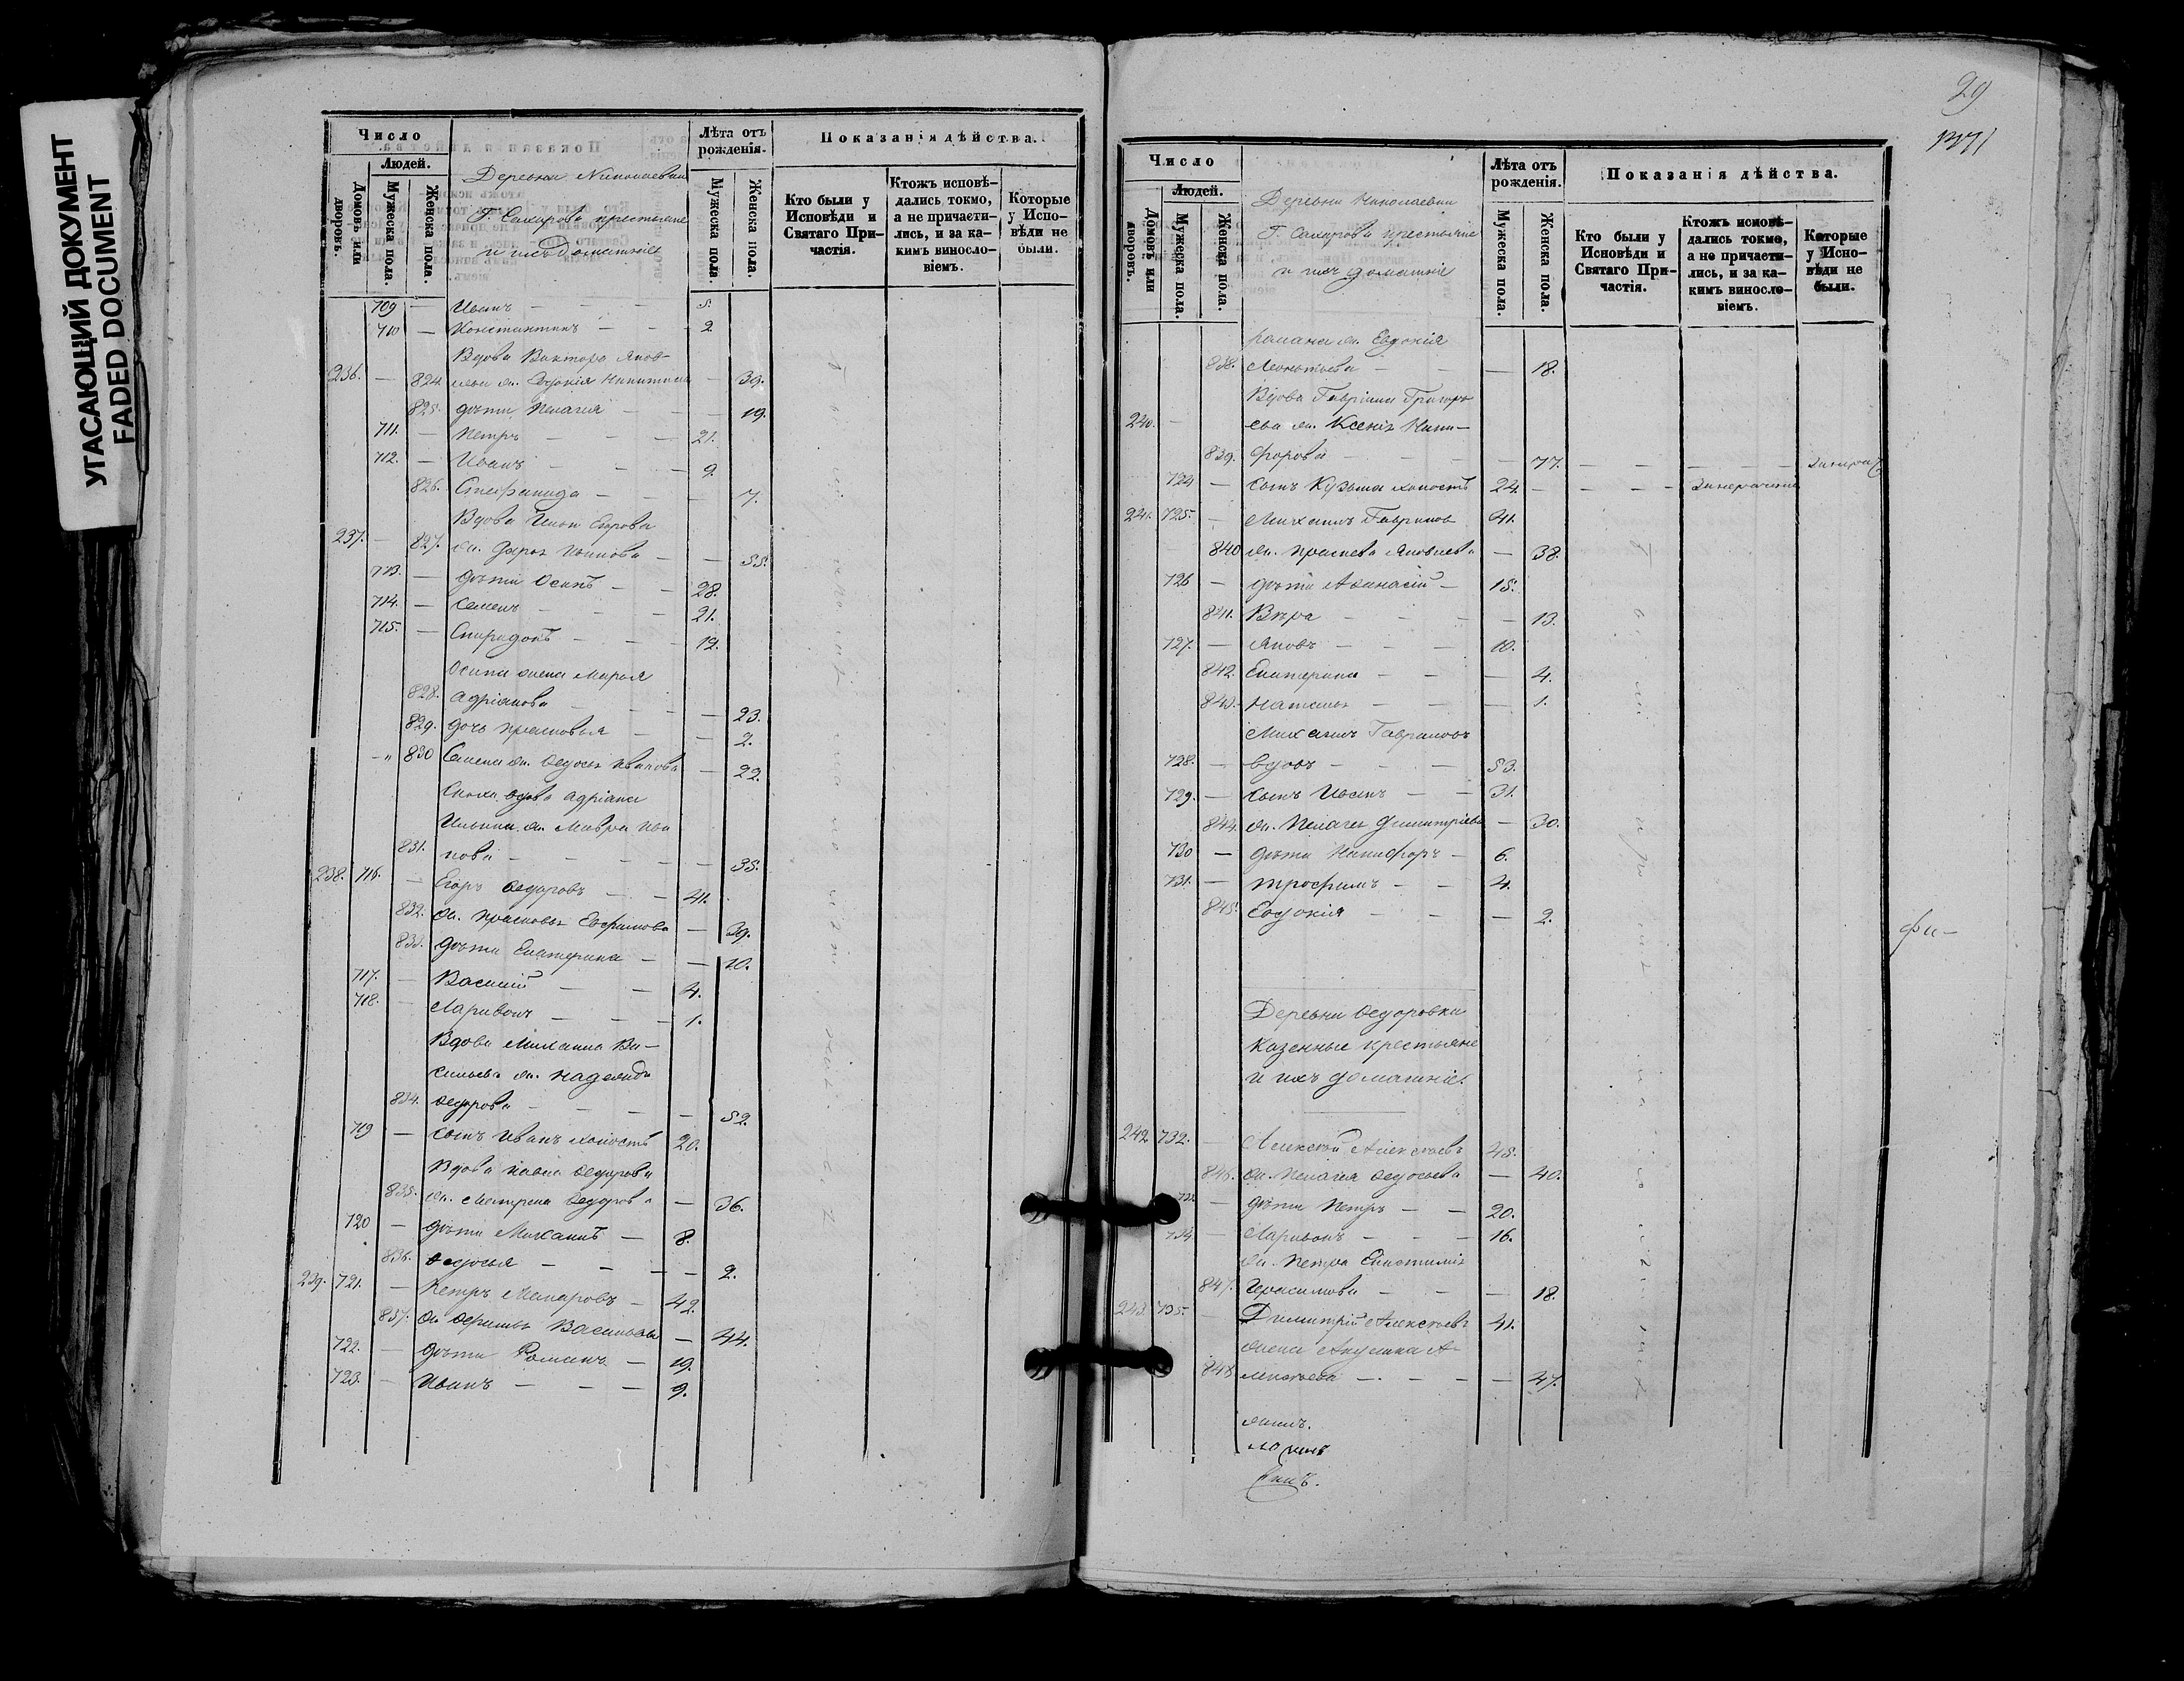 УГАСАЮЩИЙ ДОКУМЕНТ
FADED DOCUMENT
Число
Людей.
Домовъ или дворовъ.
Мужеска пола.
Женска пола.
Деревни Николаевки
Г. Сахарова крестьяне
и ихъ домашніе
Лѣта отъ рожденія.
Мужеска пола.
Женска пола.
Показанія дѣйства.
Кто были у Исповѣди и Святаго Причастія.
Ктожъ исповѣдались токмо, а не причастились, и за какимъ винословіемъ.
Которые у Исповѣди не были.
709 — Иванъ — — — 5.
710 — Константинъ — — 2.
Вдова Виктора Яков-
236. — 824 лева ж. Евдокія Никитина — 39.
825. дѣти Пелагія — — — 19.
711. — Петръ — — — 21.
712. — Иванъ — — — 9.
826. Степанида — — — 7.
Вдова Ильи Егорова
237. — 827. ж. Дарья Иванова — — 55.
713. — дѣти Осипъ — — 28.
714. — Семенъ — — — 21.
715. — Спиридонъ — — — 12.
Осипа жена Марья
828. Адріанова — — — — 23.
829. дочь Прасковья — — 2.
830 Семена ж. Ѳедосья Иванова — 22.
Сноха вдова Адріана
Ильина ж. Мавра Ива
831. нова — — — — — 35.
238. 716. — Егоръ Ѳедоровъ — — 41.
832. ж. Прасковья Ефимова — 39.
833. дѣти Екатерина — — 10.
717. — Василій — — 4.
718. — Ларивонъ — — — 1.
Вдова Михаила Ва-
сильева ж. Надежда
834. Ѳедорова — — — — 52.
719 — сынъ Иванъ холостъ 20.
Вдова Павла Ѳедорова
835. ж. Матрена Ѳедорова — 36.
720 — дѣти Михаилъ — 8.
836. Ѳедосья — — — — 2.
239. 721. — Петръ Макаровъ — 42.
837. ж. Ѳефимья Васильева — 44.
722. — дѣти Романъ — 19.
723. — Иванъ — — — 9.
29
Число
Людей.
Домовъ или дворовъ.
Мужеска пола.
Женска пола.
Деревни Николаевки
Г. Сахарова крестьяне
и ихъ домашніе
Лѣта отъ рожденія.
Мужеска пола.
Женска пола.
Показанія дѣйства.
Кто были у Исповѣди и Святаго Причастія.
Ктожъ исповѣдались токмо, а не причастились, и за какимъ винословіемъ.
Которые у Исповѣди не были.
романа ж. Евдокія
838. Леонтьева — — — 18.
Вдова Гавріила Григорь
240. — ева ж. Ксенія Ники-
839. форова — — — — 77. — — — —
724 — сынъ Кузьма холостъ 24. — — — —
241. 725. — Михаилъ Гавриловъ 41.
840 ж. Прасковья Яковлева — 38.
726 — дѣти Аѳанасій — 15.
841. Вѣра — — — — 13.
727. — Яковъ — — — 10.
842. Екатерина — — — 4.
843. Наталья — — — 1.
Михаилъ Гавриловъ
728. — вдовъ — — — 53.
729. — сынъ Иванъ — — 31.
844. ж. Пелагея Димитріева — 30.
730 — дѣти Никифоръ — 6.
731. — Трофимъ — — 4.
845. Евдокія — — — 2.
Деревни Ѳедоровки
Казенные крестьяне
и ихъ домашніе.
242 732. — Алексѣй Алексѣевъ 45.
846. ж. Пелагія Ѳедосьева — 40.
733. — дѣти Петръ — — 20.
734. — Ларивонъ — — — 16.
ж. Петра Екатерина
847. Герасимова — — — 18.
243. 735. — Димитрій Алексѣевъ 41.
жена Акулина А-
848 лексѣева — — — — 47.